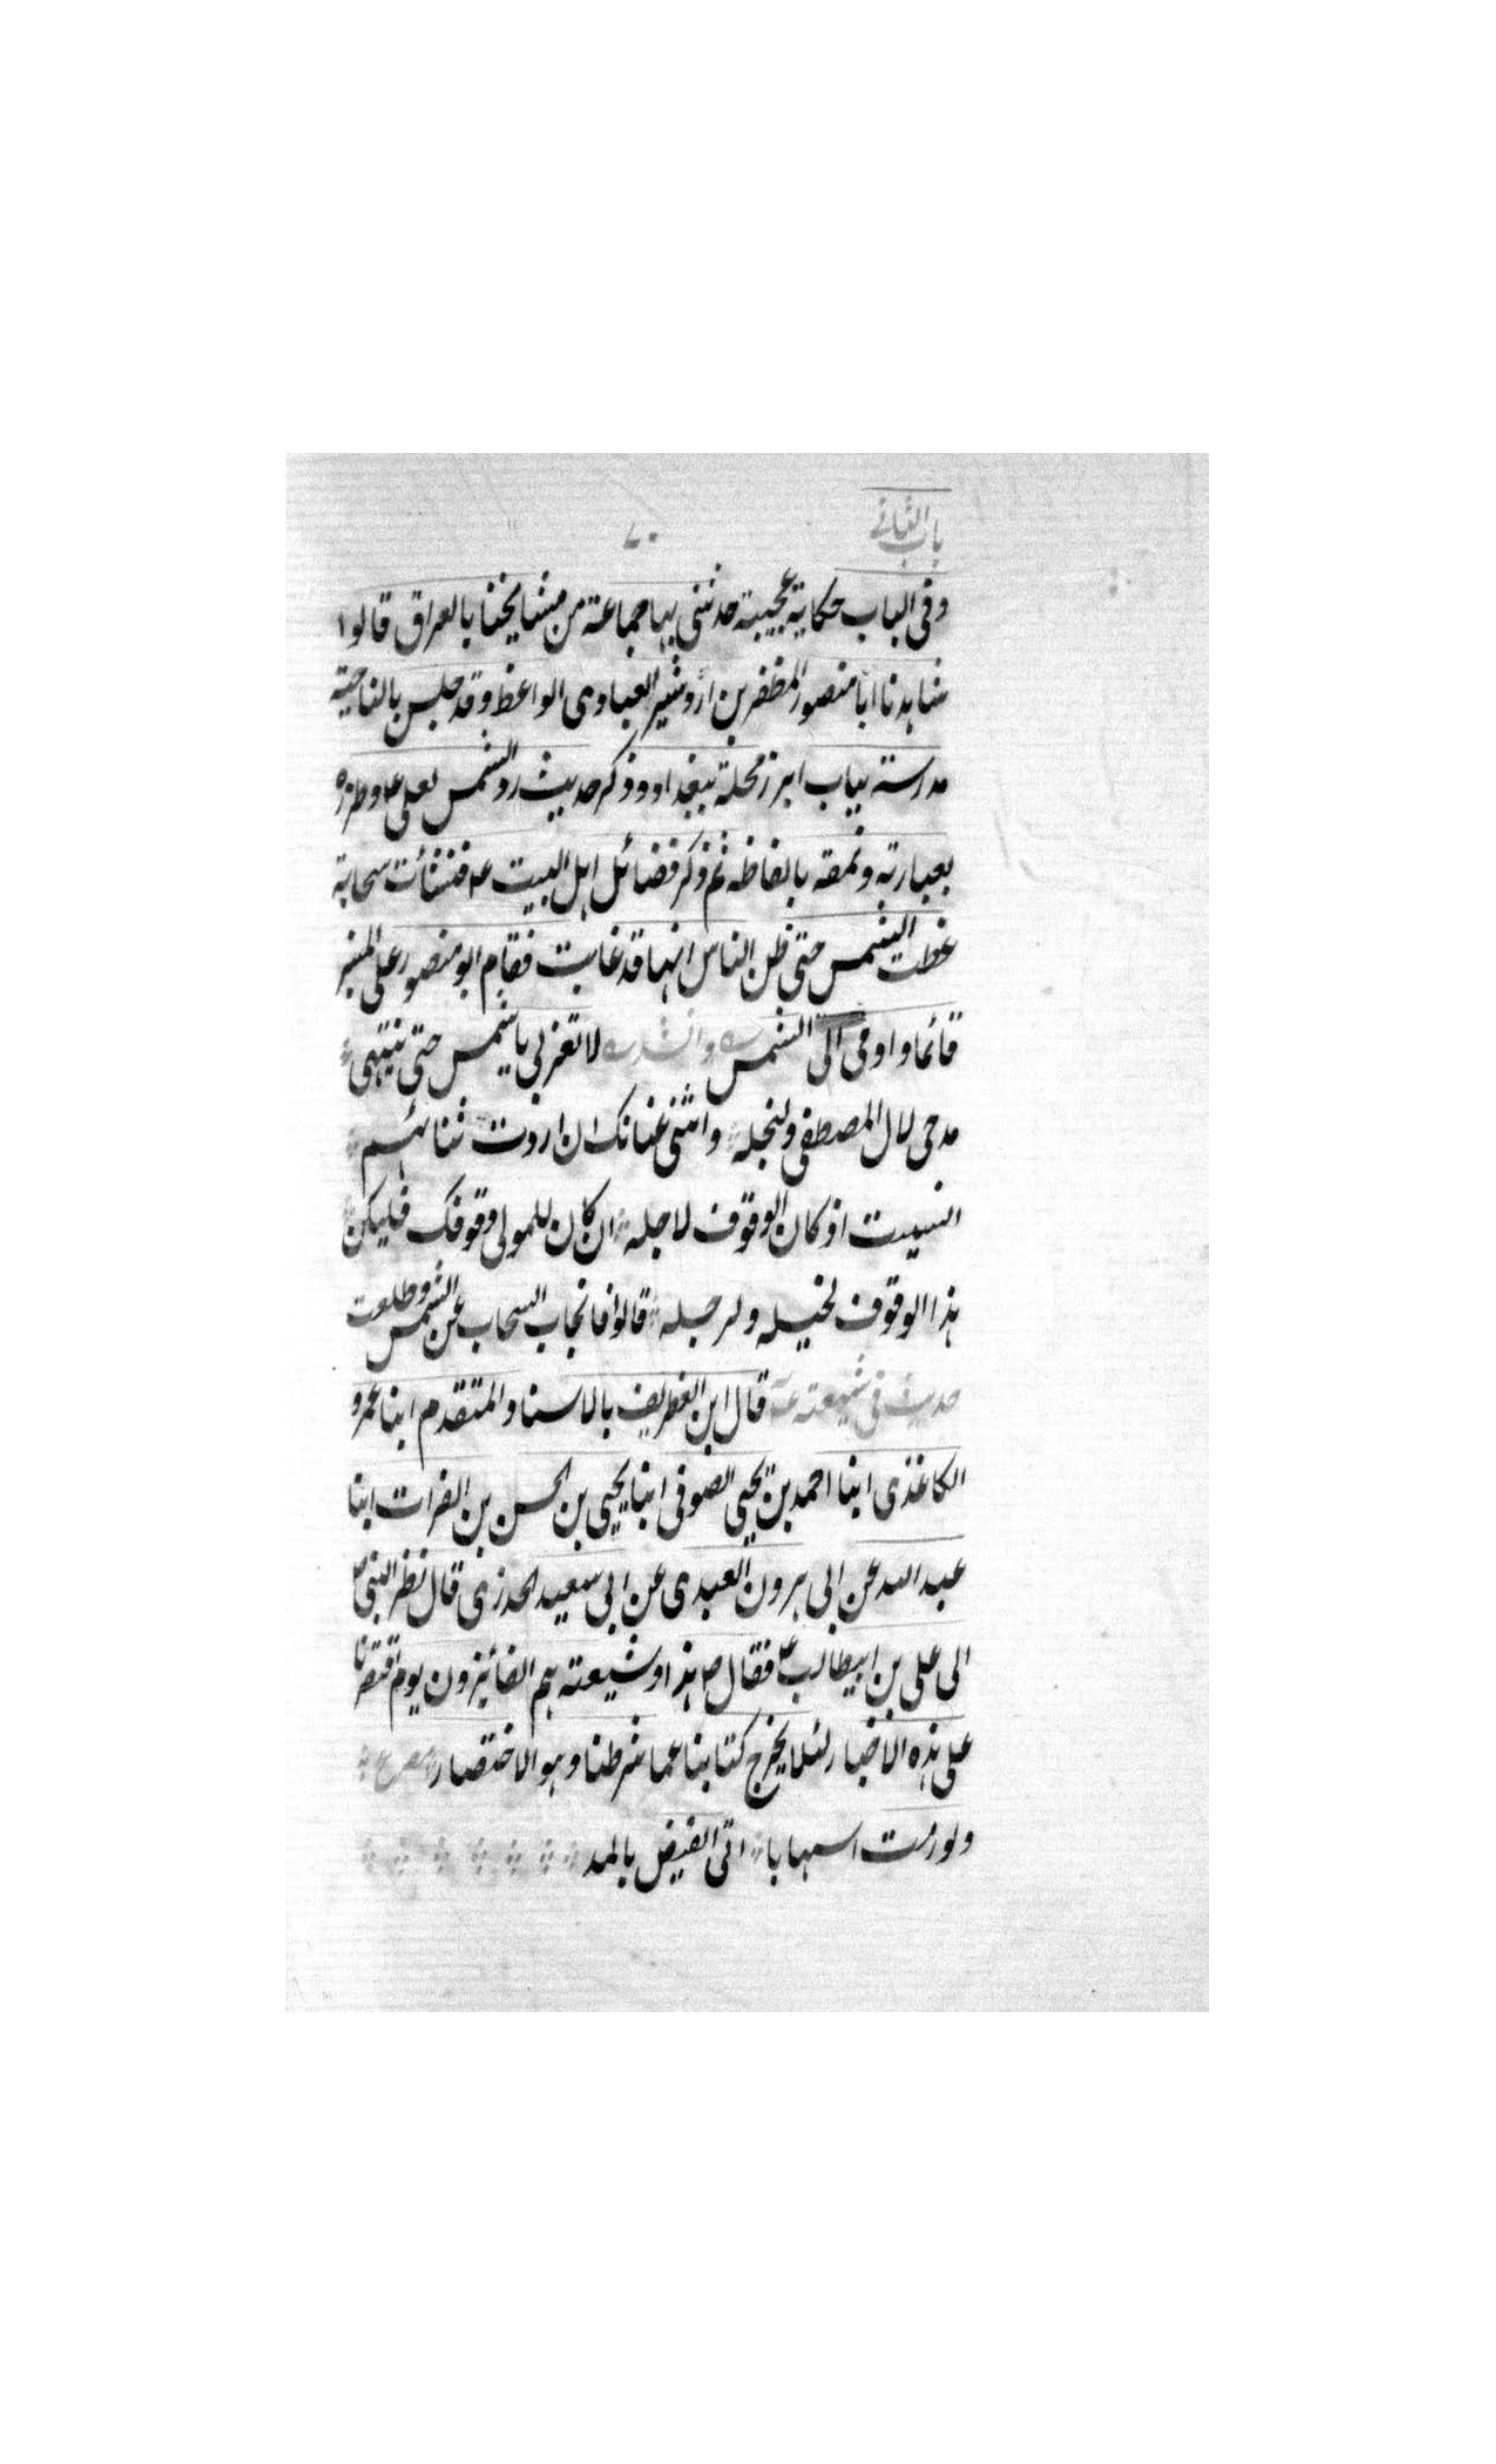 باب الثانی
۷۰
وفی الباب حکایة عجیبة حدثنی بها جماعة من مشایخنا بالعراق قالوا
شاهدنا ابا منصور المظفر بن اردشیر العبادی الواعظ وقد جلس بالناحیة
مدرسته بباب ابرز محلة ببغداد وذکر حدیث رد الشمس لعلی ع وطرزه
بعبارته ونمقه بالفاظه ثم ذکر فضائل اهل البیت عم فنشأت سحابة
غطت الشمس حتی ظن الناس انها قد غابت فقام ابو منصور علی المنبر
قائما واومی الی الشمس وانشد لا تغربی یا شمس حتی ینتهی
مدحی لال المصطفی ولنجله واثنی عنانک ان اردت ثنائهم
انسیت اذ کان الوقوف لاجله ان کان للمولی وقوفک فلیکن
هذا الوقوف لخیله ولرجله قالوا فانجاب السحاب عن الشمس وطلعت
حدیث فی شیعته ع قال ابن الغطریف بالاسناد المتقدم ابنا عمرو
الکاغذی ابنا احمد بن یحیی الصوفی ابنا یحیی بن الحسن بن الفرات ابنا
عبد الله عن ابی هرون العبدی عن ابی سعید الخدری قال نظر النبی ص
الی علی بن ابیطالب ع فقال ص هذا وشیعته هم الفائزون یوم اقتصرنا
علی هذه الاخبار لئلا یخرج کتابنا عما شرطنا وهو الاختصار مصرع
ولو رمت اسهابا اتی الفیض بالمد